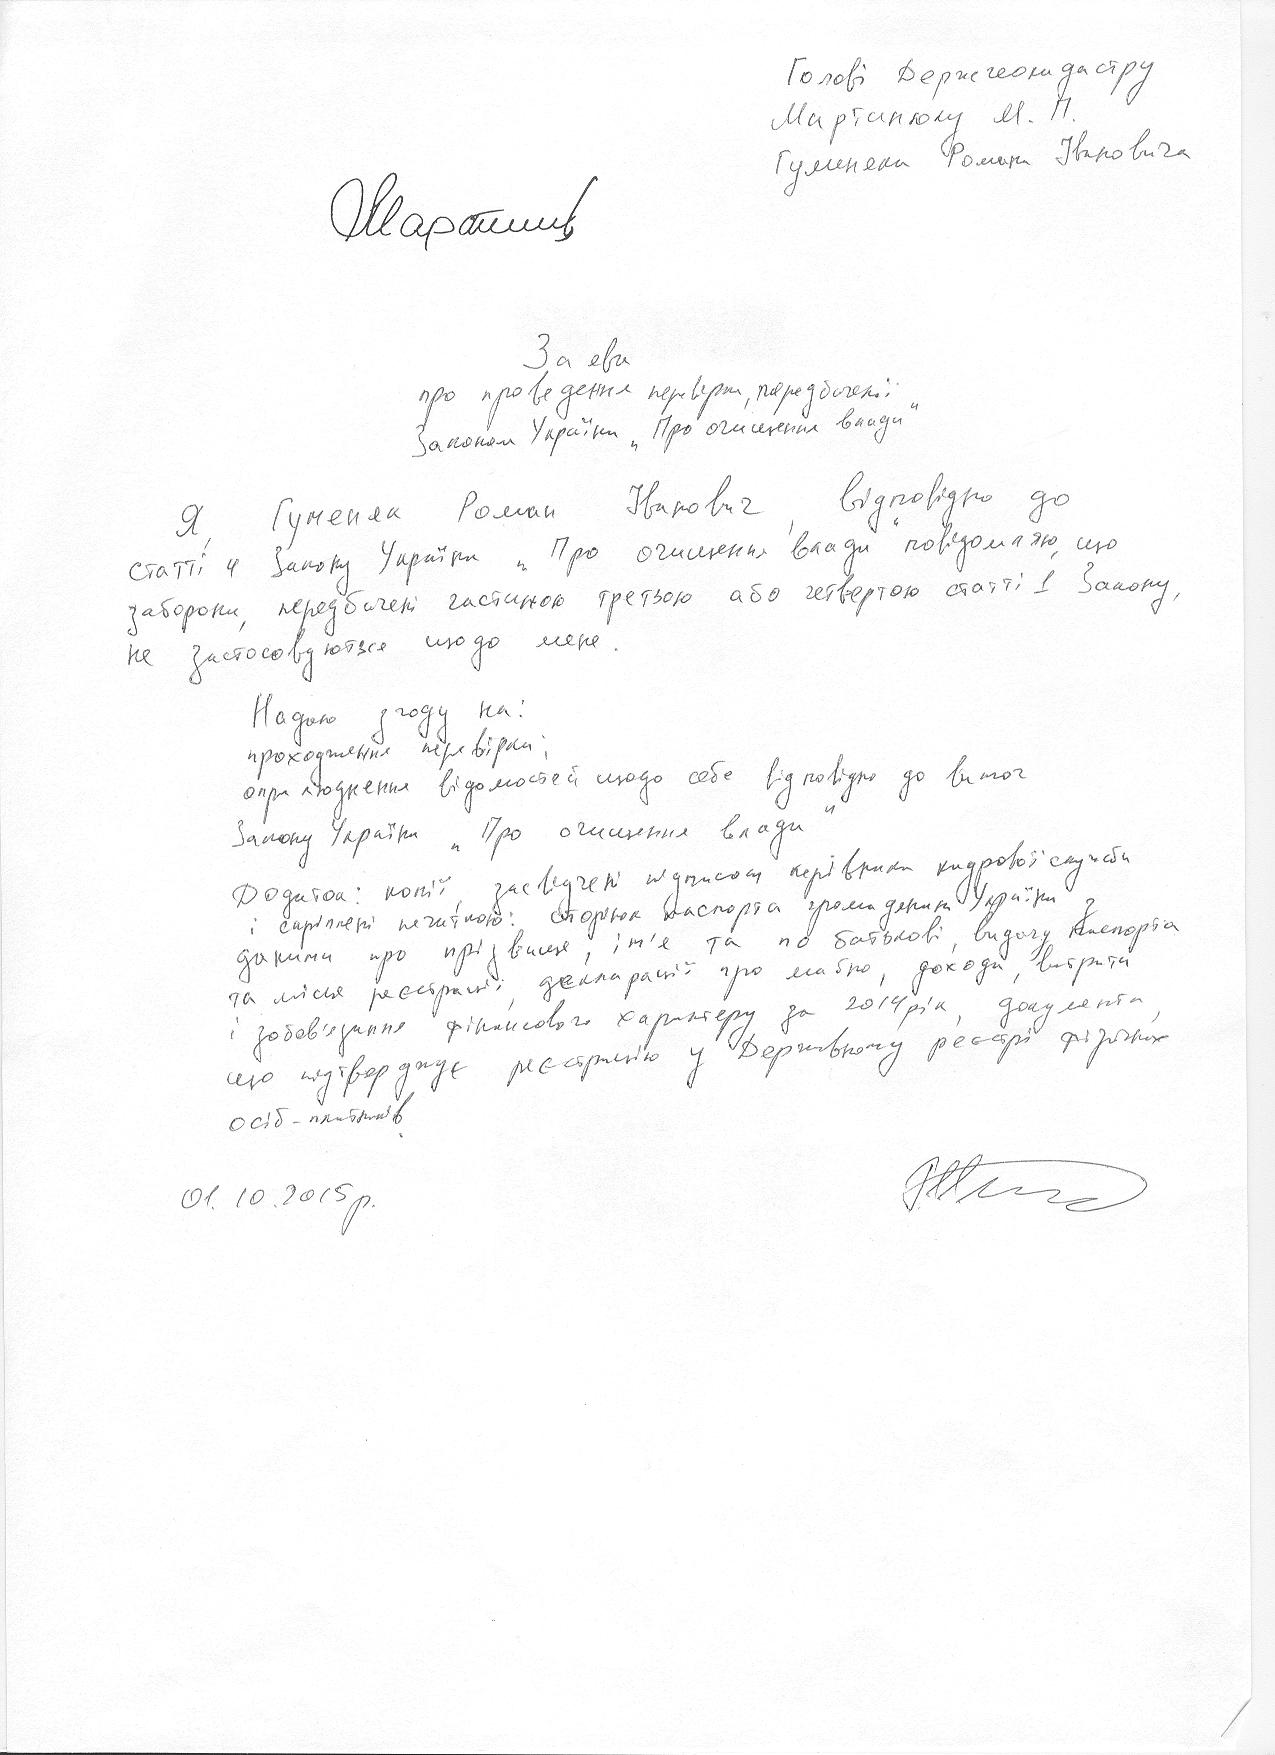 Голові Держгеокадастру
Мартинюку М. П.
Гуменяка Романа Івановича
Заява
про проведення перевірки, передбаченої
Законом України „Про очищення влади"
Я, Гуменяк Роман Іванович, відповідно до
статті 4 Закону України „Про очищення влади" повідомляю, що
заборони, передбачені частиною третьою або четвертою статті 1 Закону,
не застосовуються щодо мене.
Надаю згоду на:
проходження перевірки;
оприлюднення відомостей щодо себе відповідно до вимог
Закону України „Про очищення влади"
Додаток: копії, засвідчені підписом керівника кадрової служби
і скріплені печаткою: сторінок паспорта громадянина України з
даними про прізвище, ім'я та по батькові, видачу паспорта
та місце реєстрації, декларації про майно, доходи, витрати
і зобов'язання фінансового характеру за 2014 рік, документа,
що підтверджує реєстрацію у Державному реєстрі фізичних
осіб-платників.
01.10.2015р.